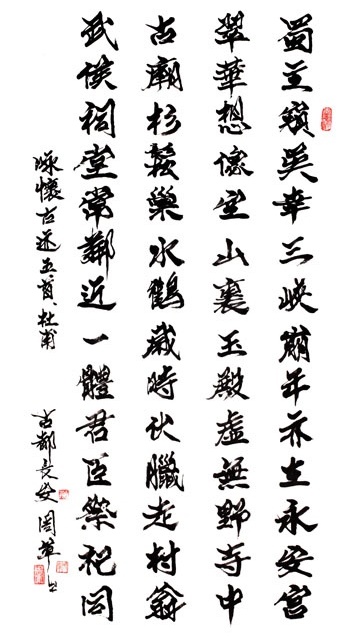 蜀主窺吳幸三峽崩年亦在永安宮
翠華想像空山裏玉殿虛無野寺中
古廟杉鬆巢水鶴歲時伏臘走村翁
武侯祠堂常鄰近一體君臣祭祀同
咏懷古迹五首、杜甫 古都長安